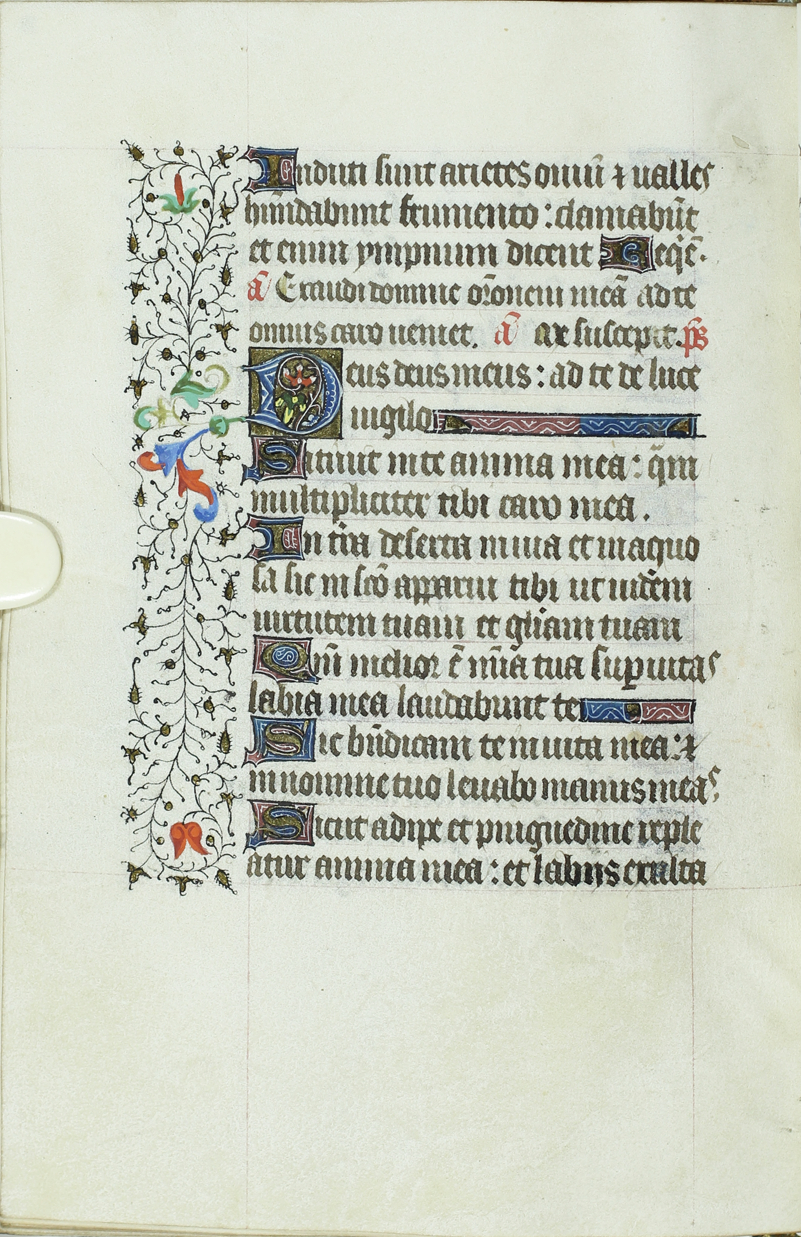 Induti sunt arietes ouiū ⁊ ualles
habūdabunt frumento : clamabūt
et enim ympnum dicent Req̄ē.
a᷃ Exaudi domine or̄onem meā ad te
omnis caro ueniet. a᷃ Me suscepit. p̄s
Deus deus meus : ad te de luce
uigilo
Sitiuit in te anima mea : q̄m
multipliciter tibi caro mea .
In t̄ra deserta inuia et inaquo
sa sic in sc̄o apparui tibi ut uid̄em
uirtutem tuam et gl̄iam tuam
Qm̄ melior ē mīa tua sup uitas
labia mea laudabunt te
Sic bn̄dicam te in uita mea : ⁊
in nomine tuo leuabo manus meas
Sicut adipe et pinguedine reple
atur anima mea : et labiis exulta